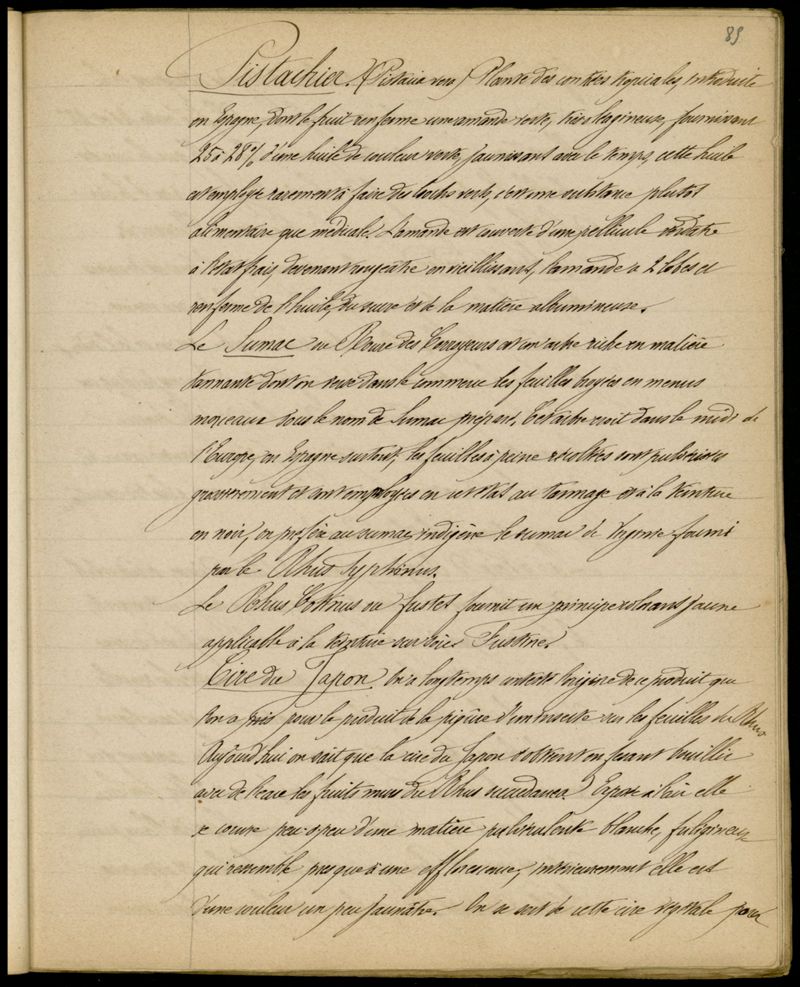 89
Pistachier. (Pistacia vera) Plante des contrées tropicales, introduite
en Espagne, dont le fruit renferme une amande verte, très oléagineuse, fournissant
25 à 28% d'une huile de couleur verte, jaunissant avec le temps, cette huile
est employée rarement à faire des loochs verts, c'est une substance plutôt
alimentaire que médicale. L'amande est couverte d'une pellicule verdâtre
à l'état frais, devenant rougeâtre en vieillissant, l'amande a 2 lobes et
renferme de l'huile, du sucre et de la matière albumineuse.
Le Sumac ou Roure des Corroyeurs est un arbre riche en matière
tannante dont on verse dans le commerce les feuilles broyées en menus
morceaux sous le nom de Sumac préparé. Cet arbre croit dans le midi de
l'Europe, en Espagne surtout; les feuilles à peine récoltées sont pulvérisées
grossièrement et sont employées en cet état au tannage et à la teinture
en noir, on préfère au sumac indigène le sumac de fourni
par le Rhus Typhinus.
Le Rhus Cotinus ou fustet fournit un principe colorant jaune
applicable à la teinture sur soie: Fustine.
Cire du Japon. On a longtemps l'origine de ce produit que
l'on a pris pour le produit de la piqûre d'un insecte sur les feuilles du Rhus
Aujourd'hui on sait que la cire du Japon s'obtient en faisant bouillir
avec de l'eau les fruits murs du Rhus succedanea. Exposée à l'air elle
se couvre peu-à-peu d'une matière pulvérulente blanche, fuligineuse
qui ressemble presque à une efflorescence, intérieurement elle est
d'une couleur un peu jaunâtre. On se sert de cette cire végétale pour